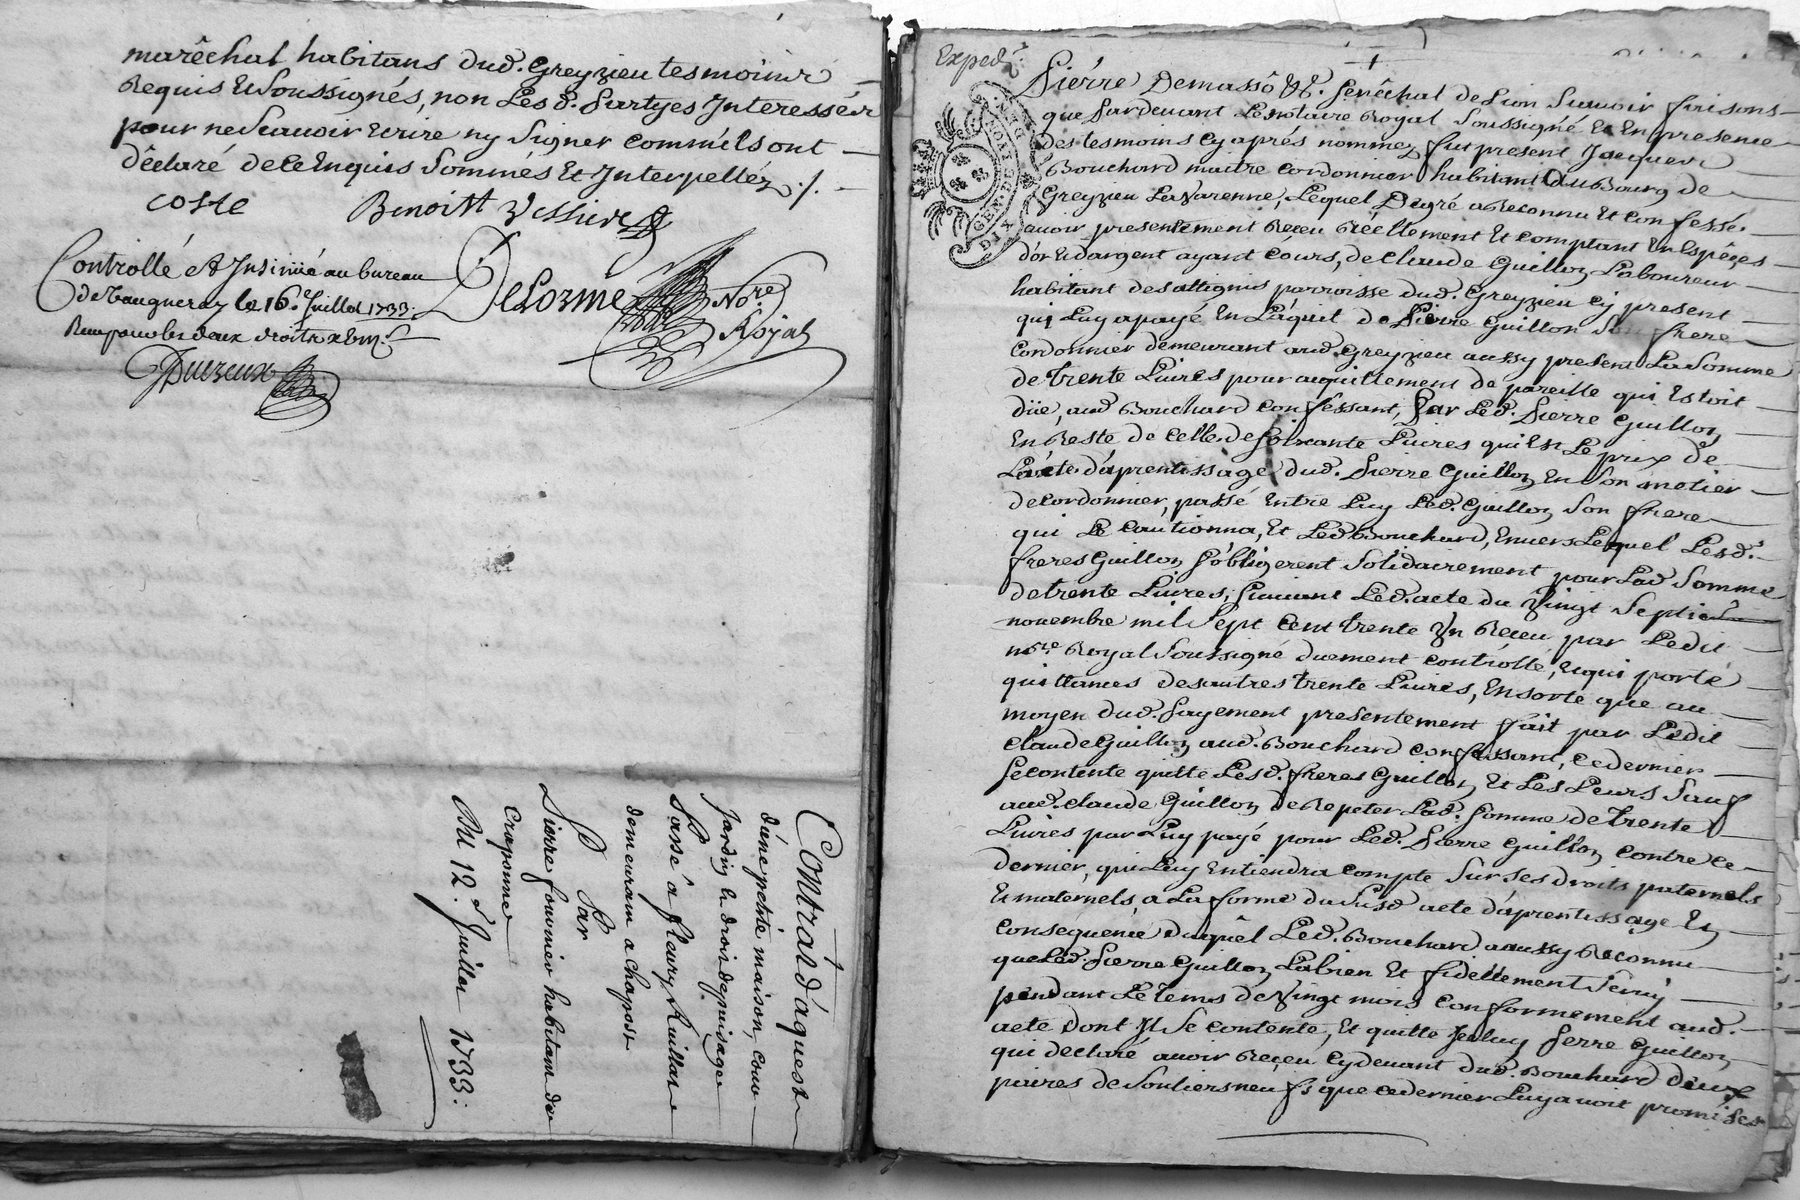 marêchal habitans dud. Greyzieu tesmoins
Requis et soussignés, non Les d. partyes Interessées
pour ne scauoir ecrire ny signer comme ils ont
dêclaré de ce Enquis sommés Et Interpellés ./.
coste Benoist Tissieux
Controllé et Insinüé au bureau
de Vaugneray le 16.e Juillet 1733.
Reçu pour les deux droits
DeLorme No.re
Royal
Contrat d'aquest
d'une petite maison, cour
Jardin et droit de puisage
Passé a fleury
demeurant a chaponost
Par
Pierre fournier habitant de
Craponne
Du 12.e Juillet 1733.
Exped.
GEN. DE LYON
Pierre Demasso &c. Senêchal de Lion scauoir faisons
que pardeuant Le notaire Royal soussigné Et En presence
des tesmoins cy aprés nommez fut present Jacques
Bouchard maitre cordonnier habitant du Bourg de
Greyzieu La Varenne, Lequel De gré a Reconnu Et confessé
auoir presentement Receu Réellement Et comptant En Espéces
d'or Et d'argent ayant cours, de Claude Guillon Laboureur
habitant des attignis parroisse dud. Greyzieu cy present
qui Luy a payé En L'aquit de Pierre Guillon son frere
Cordonnier demeurant aud. Greyzieu aussy present La somme
de trente Liures pour aquittement de pareille qui Estoit
düe, aud. Bouchard confessant, Par Led. Pierre Guillon
En Reste de celle de soixante Liures qui Est Le prix de
L'acte d'aprentissage dud. Pierre Guillon En son metier
de cordonnier, passé Entre Luy Led. Guillon son frere
qui Le cautionna, Et Led. Bouchard, Enuers Lequel Lesd.
freres Guillon s'obligerent solidairement pour Lad. somme
de trente Liures, suiuant Led. acte du Vingt Sept
nouembre mil Sept Cent trente Vn Receu par Ledit
no.re Royal soussigné duement controllé, Et qui porte
quittances des autres trente Liures, En sorte que au
moyen dud. payement presentement fait par Ledit
Claude Guillon aud. Bouchard confessant, ce dernier
se contente quitte Lesd. freres Guillon Et Les Leurs sauf
aud. Claude Guillon de Repeter Lad. somme de trente
Liures par Luy payé pour Led. Pierre Guillon contre ce
dernier, qui Luy En tiendra compte sur ses droits paternels
Et maternels, a La forme du susd. acte d'aprentissage En
consequence duquel Led. Bouchard a aussy Reconnu
que Led. Pierre Guillon L'a bien Et fidéllement seruy
pendant Le tems de Vingt mois conformement aud.
acte dont Il se contente, Et quitte Iceluy Pierre Guillon
qui declare auoir Receu Cy deuant dud. Bouchard deux
paires de souliers neufs que ce dernier Luy auoit promises